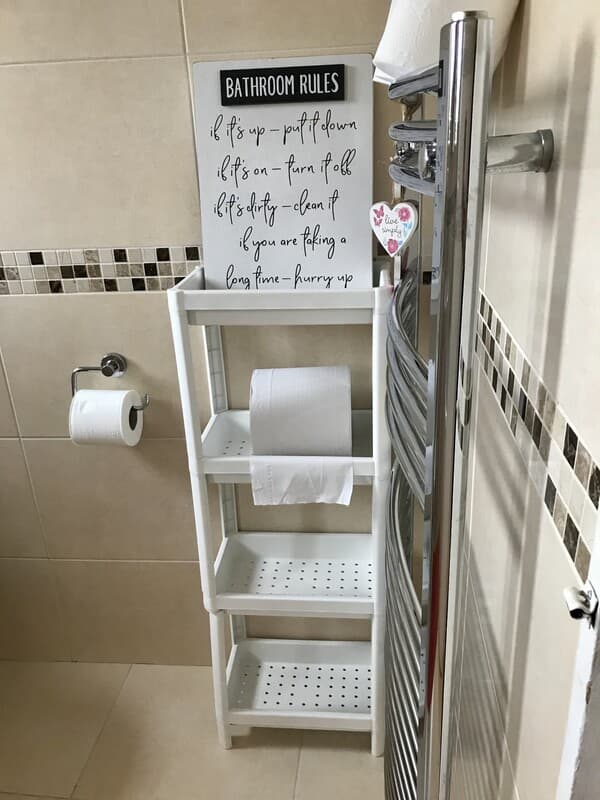 BATHROOM RULES
if it's up – put it down
if it's on – turn it off
if it's dirty – clean it
if you are taking a
long time – hurry up
live
simply